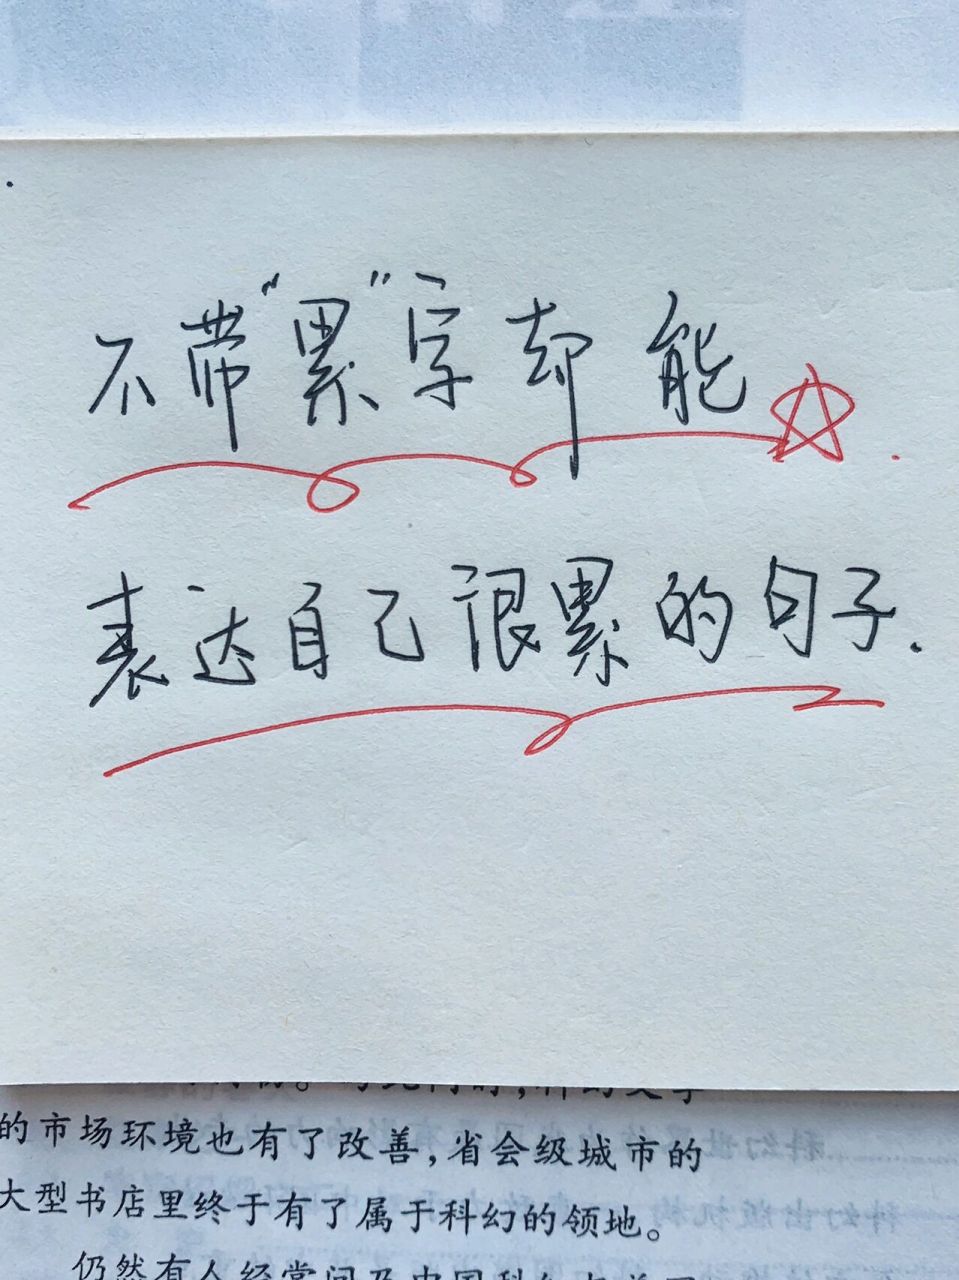 不带“累”字却能
表达自己很累的句子.
的市场环境也有了改善,省会级城市的
大型书店里终于有了属于科幻的领地。
仍然有人经常问及中国科幻